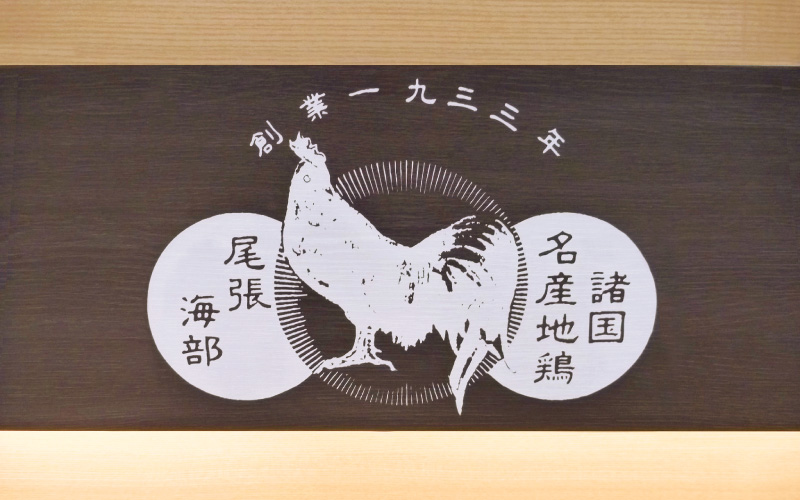 創業一九三三年
諸国
名産地鶏
尾張
海部